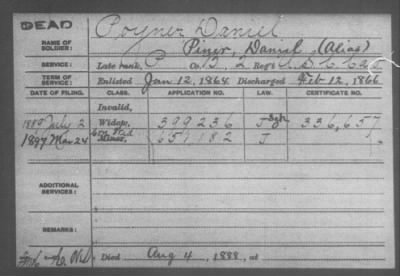 DEAD
Poyner Daniel
NAME OF SOLDIER: Piner, Daniel, (Alias)
SERVICE: Late rank, P Co. B, 2 Reg't U.S.C. Cav
TERM OF SERVICE: Enlisted Jan 12, 1864 Discharged Feb 12, 1866
DATE OF FILING. CLASS. APPLICATION NO. LAW. CERTIFICATE NO.
Invalid,
1889 July 2 Widow, 399236 J 336,657
1897 Mar 24 Minor, 651182 J
ADDITIONAL SERVICES:
REMARKS:
Died Aug 4, 1888, at